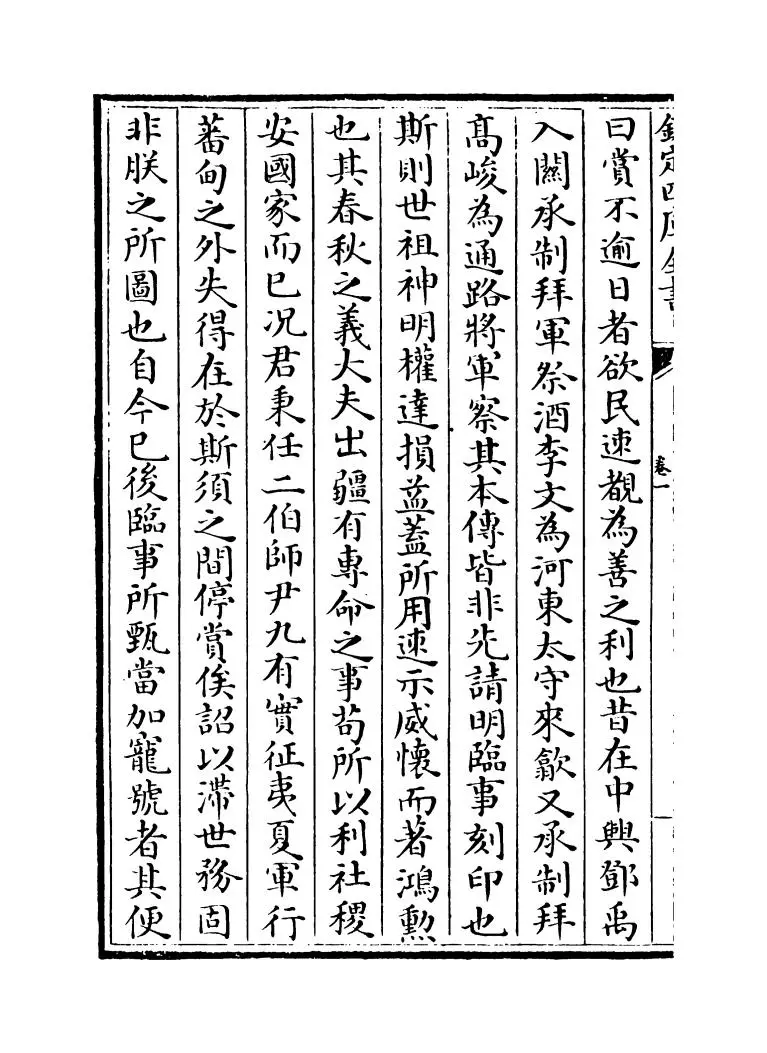 欽定四庫全書
卷一
曰賞不逾日者欲民速覩為善之利也昔在中興鄧禹
入關承制拜軍祭酒李文為河東太守來歙又承制拜
髙峻為通路將軍察其本傳皆非先請明臨事刻印也
斯則世祖神明權達損益蓋所用速示威懷而著鴻勲
也其春秋之義大夫出疆有專命之事茍所以利社稷
安國家而已况君秉任二伯師尹九有實征夷夏軍行
蕃甸之外失得在於斯須之間停賞俟詔以滯世務固
非朕之所圖也自今已後臨事所甄當加寵號者其便